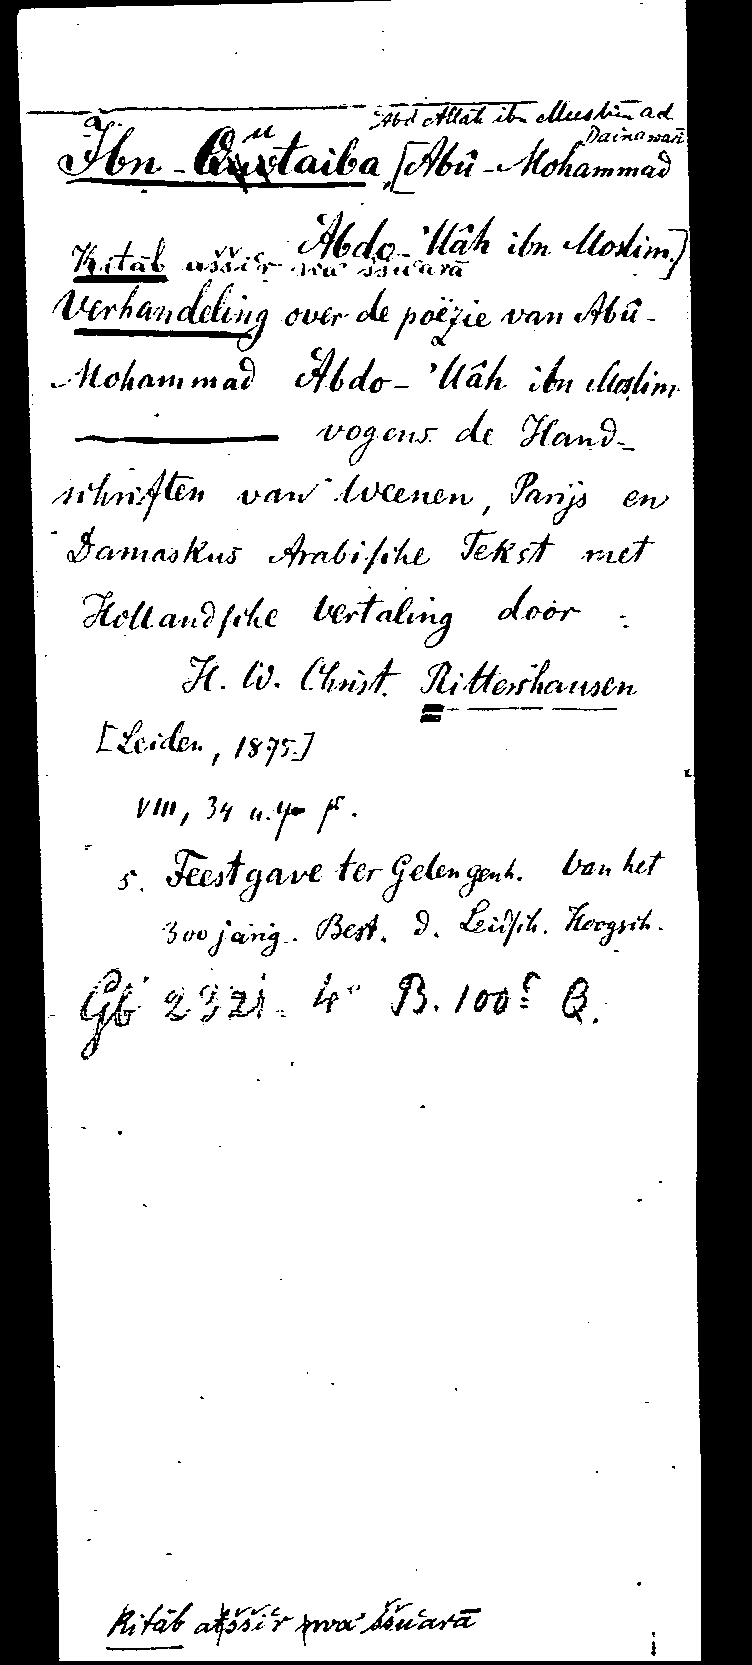 Abd Allāh ibn Muslim ad
Dainawarī
Ibn-Qutaiba [Abû-Mohammad
Abdo-'llâh ibn Moslim.]
Kitāb aššiʿr wa ššuʿarā
Verhandeling over de poëzie van Abû-
Mohammad Abdo-'llâh ibn Moslim
vogens de Hand-
schriften van Weenen, Parijs en
Damaskus Arabische Tekst met
Hollandsche Vertaling door :
H. W. Christ. Rittershausen
[Leiden, 1875.]
VIII, 34 u.
5. Feestgave ter Gelengenh. Van het
300 jarig. Best. d. Leidsch. Hoogsch.
Gb 2321. 4° B. 100 Q.
Kitāb aššiʿr wa ššuʿarā